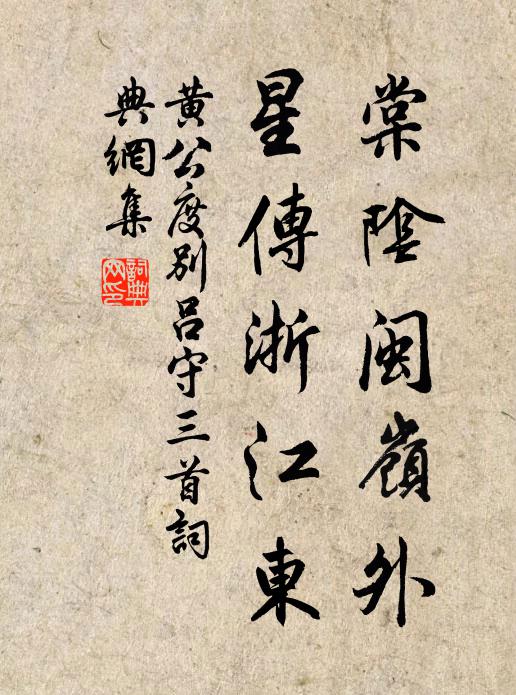 棠陰閩嶺外
星傳浙江東
黃公度別呂守三首詞
典網集
詞典網印